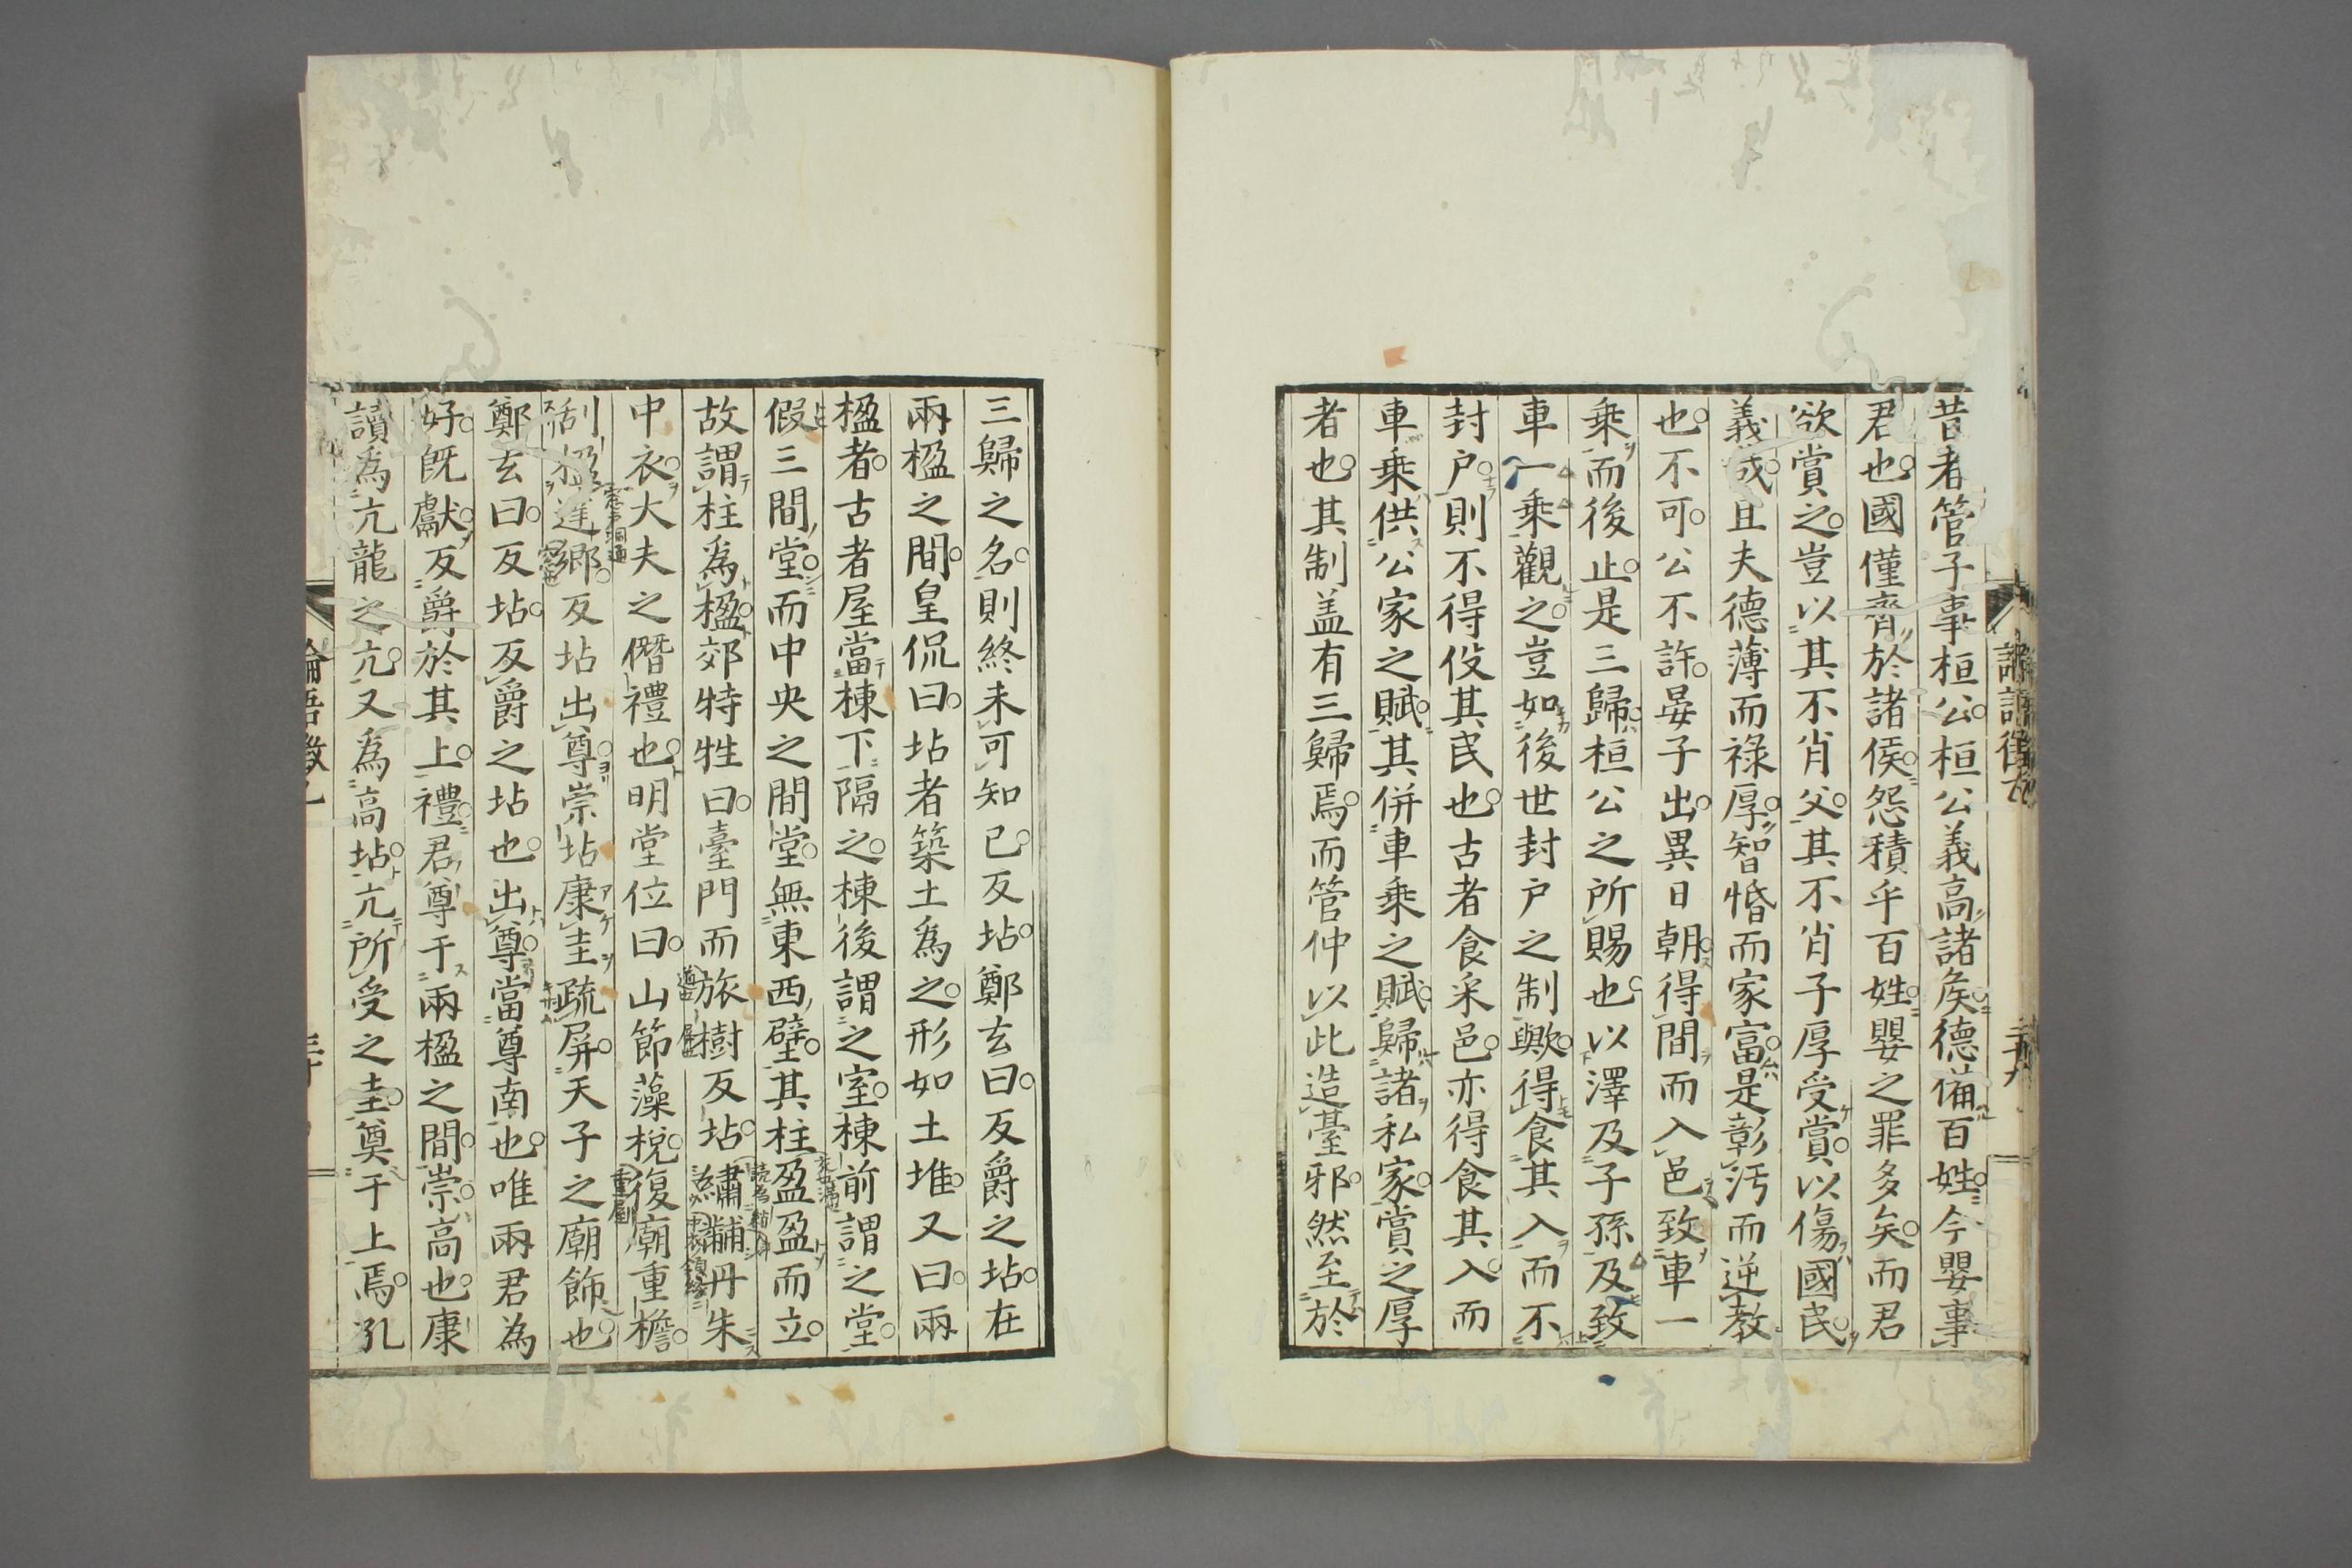 昔者管子事桓公桓公義高諸矦德備百姓今嬰事
君也國僅齊於諸侯怨積乎百姓嬰之罪多矣而君
欲賞之豈以其不肖父其不肖子厚受賞以傷國民
義哉且夫德薄而祿厚智惛而家富是彰汚而逆教
也不可公不許晏子出異日朝得間而入邑致車一
乘而後止是三歸桓公之所賜也以澤及子孫及致
車一乘觀之豈如後世封戸之制歟得食其入而不
封戸則不得役其民也古者食采邑亦得食其入而
車乘供公家之賦其併車乘之賦歸諸私家賞之厚
者也其制盖有三歸焉而管仲以此造臺邪然至於
三歸之名則終未可知已反坫鄭玄曰反爵之坫在
兩楹之間皇侃曰坫者築土為之形如土堆又曰兩
楹者古者屋當棟下隔之棟後謂之室棟前謂之堂
假三間堂而中央之間堂無東西壁其柱盈盈而立
故謂柱爲楹郊特牲曰臺門而旅樹反坫繡黼丹朱
中衣大夫之僭禮也明堂位曰山節藻梲復廟重檐
刮楹達鄉反坫出尊崇坫康圭疏屏天子之廟飾也
鄭玄曰反坫反爵之坫也出尊當尊南也唯兩君為
好既獻反爵於其上禮君尊于兩楹之間崇高也康
讀爲亢龍之亢又爲高坫亢所受之圭奠于上焉孔